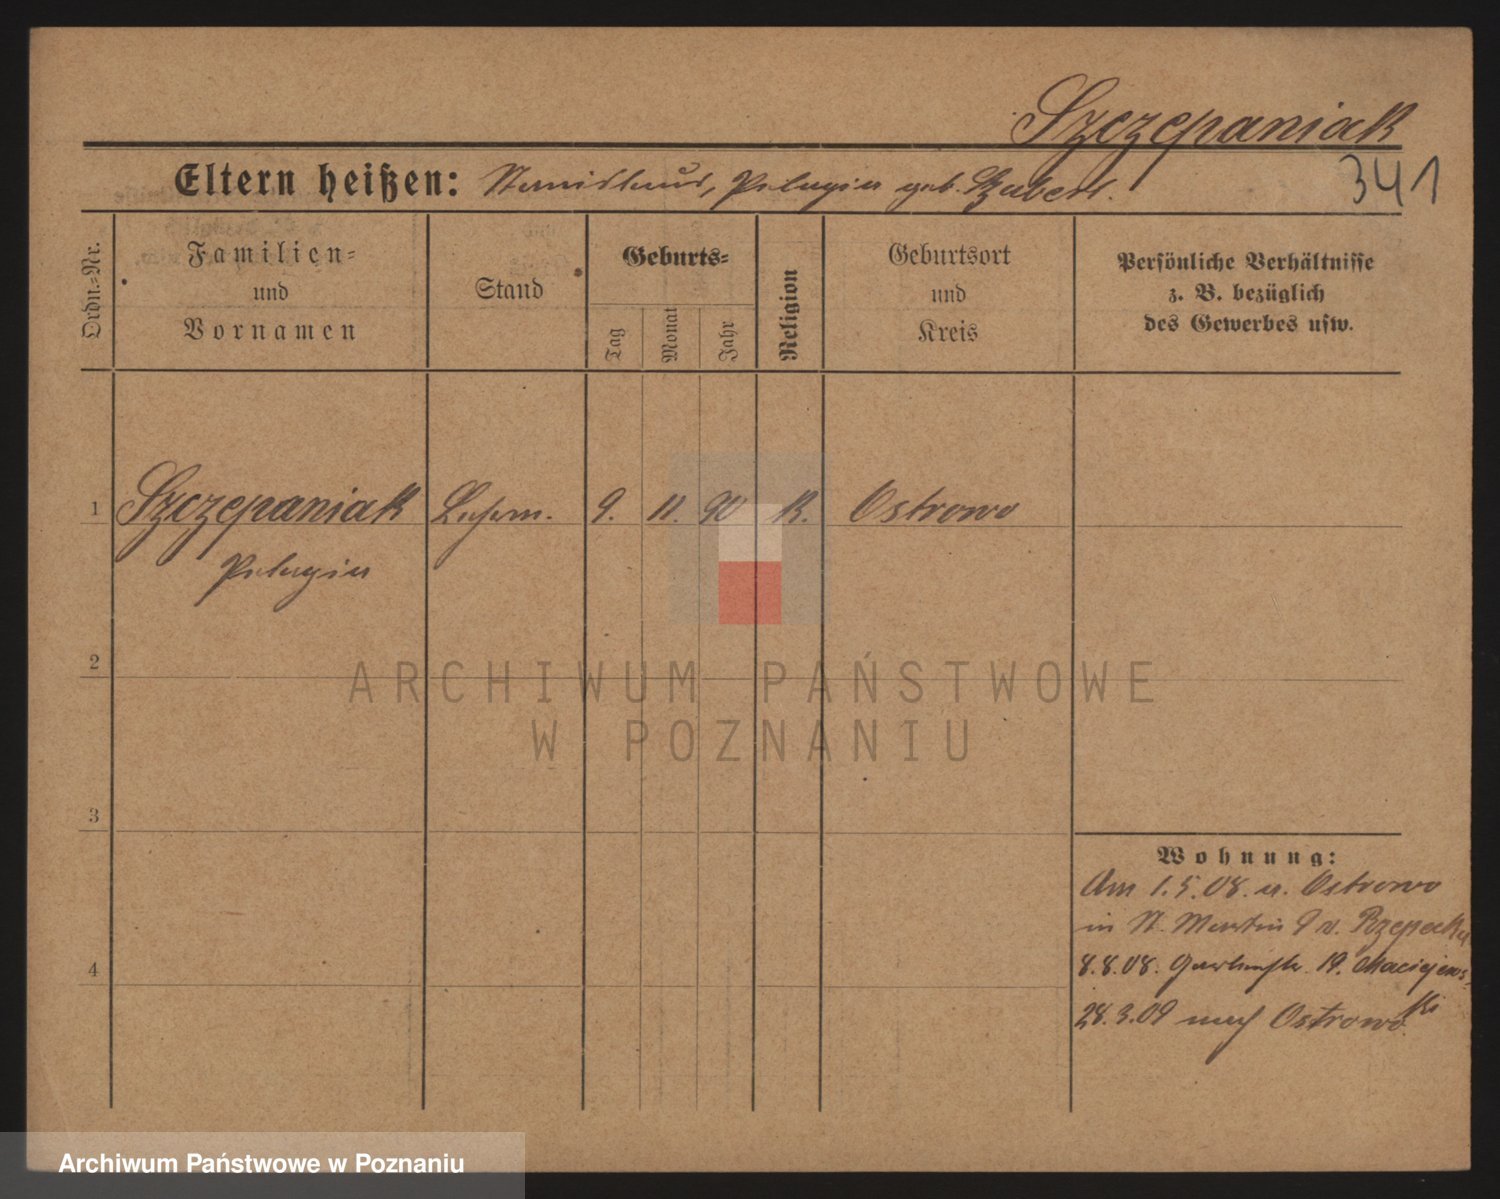 Szczepaniak
341
Eltern heißen: Stanislaus, Pelagia geb.
Ordn.-Nr.
Familien-
und
Vornamen
Stand
Geburts-
Tag
Monat
Jahr
Religion
Geburtsort
und
Kreis
Persönliche Verhältnisse
z. B. bezüglich
des Gewerbes usw.
1 Szczepaniak 9. 11. 90 K. Ostrowo
Pelagia
2
ARCHIWUM PAŃSTWOWE
W POZNANIU
3
4
Wohnung:
Am 1.5.08. a. Ostrowo
in St. Martin 9 b. Rzepecka
8.8.08. Gartenstr. 19. Maciejews-
ki
28.3.09 nach Ostrowo.
Archiwum Państwowe w Poznaniu